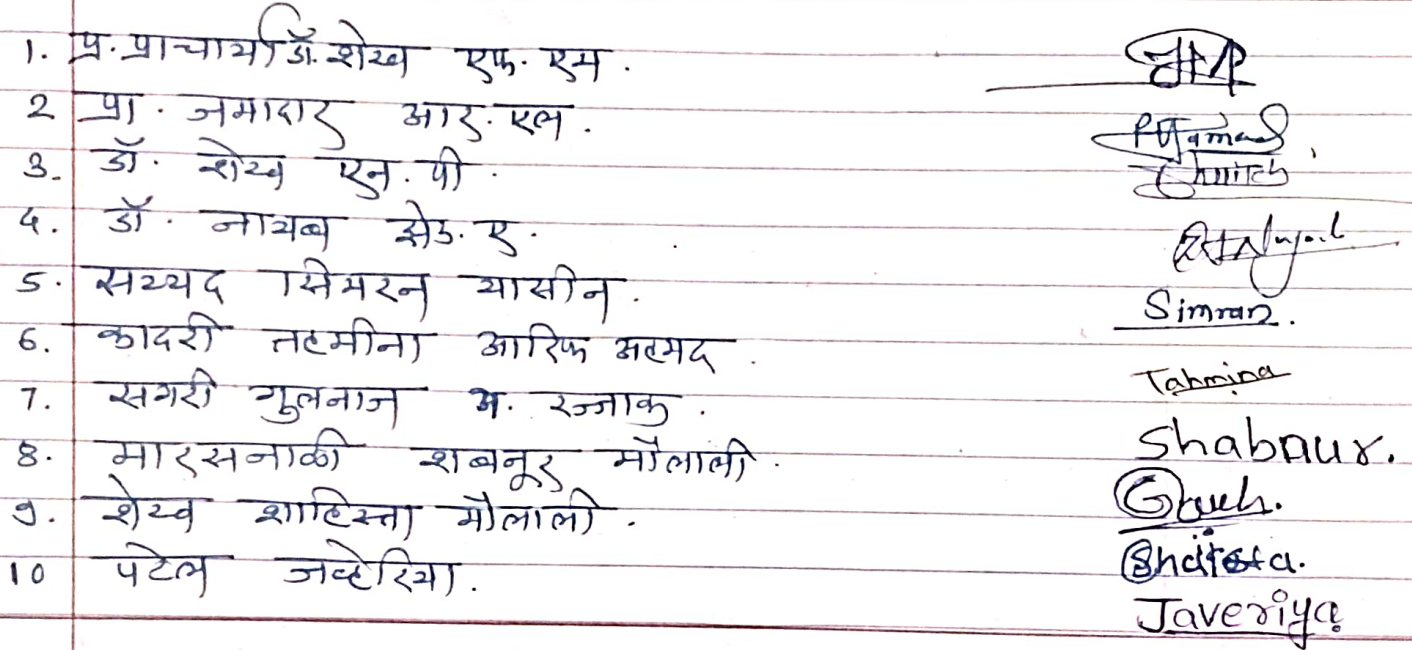 1. प्र. प्राचार्य डॉ. शेख एफ. एम.
2 प्रा. जमादार आर. एल.
3. डॉ. शेख एन. पी.
4. डॉ. नायब झेड. ए.
5. सय्यद सिमरन यासीन. Simran.
6. कादरी तहमीना आरिफ अहमद. Tahmina
7. सगरी गुलनाज अ. रज्जाक.
8. मारसनाळी शबनूर मौलाली. Shabnur.
9. शेख शाहिस्ता मौलाली.
10 पटेल जव्हेरिया. Javeriya